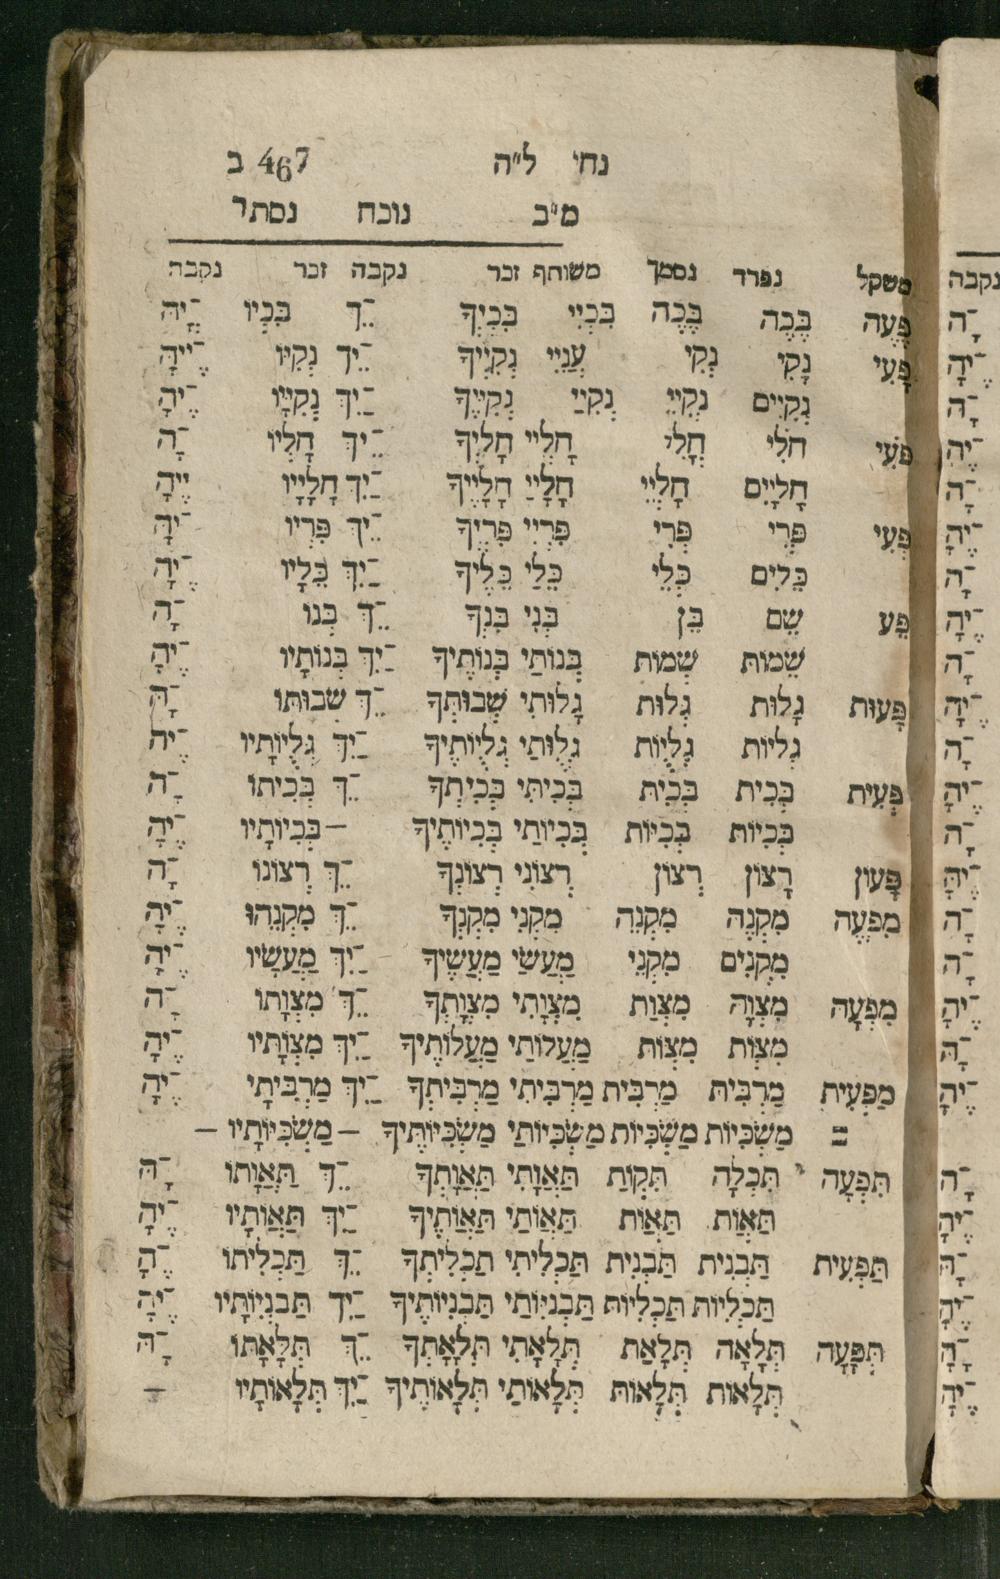 נחי ל״ה 467 ב
מ״ב נוכח נסתר
משקל נפרד נסמך משותף זכר נקבה זכר נקבה
פֶּעֶה בֶּכֶה בֶּכֶה בִּכְיִי בִּכְיְךָ ־ֵךְ בִּכְיו ־ֶיהָ
פָּעִי נָקִי נְקִי עֲנִיִי נְקִיְךָ ־ֵיךְ נְקִיּוֹ ־ֶיהָ
נְקִיִּים נְקִיֵּי נְקִיַּי נְקִיֶּיךָ ־ַיִךְ נְקִיָּיו ־ֶיהָ
פֹּעִי חֹלִי חֳלִי חָלְיִי חָלְיְךָ ־ֵיךְ חָלְיוֹ ־ָהּ
חֳלָיִים חֳלָיֵי חֳלָיַי חֳלָיֶיךָ ־ַיִךְ חֳלָיָיו ־ֶיהָ
פְּעִי פְּרִי פְּרִי פִּרְיִי פִּרְיְךָ ־ֵיךְ פִּרְיוֹ ־ָהּ
כֵּלִים כְּלֵי כֵּלַי כֵּלֶיךָ ־ַיִךְ כֵּלָיו ־ֶיהָ
פֵּע שֵׁם בֵּן בְּנִי בִּנְךָ ־ֵךְ בְּנוֹ ־ָהּ
שֵׁמוֹת שְׁמוֹת בְּנוֹתַי בְּנוֹתֶיךָ ־ַיִךְ בְּנוֹתָיו ־ֶיהָ
פָּעוּת גָּלוּת גְּלוּת גָּלוּתִי שְׁבוּתְךָ ־ֵךְ שְׁבוּתוֹ ־ָהּ
גְּלִיוֹת גְּלֻיּוֹת גְּלוּתַי גְּלֻיּוֹתֶיךָ ־ַיִךְ גְּלֻיּוֹתָיו ־ֶיהָ
פְּעִית בְּכִית בְּכִית בְּכִיתִי בְּכִיתְךָ ־ֵךְ בְּכִיתוֹ ־ָהּ
בְּכִיּוֹת בְּכִיּוֹת בְּכִיּוֹתַי בְּכִיּוֹתֶיךָ — בְּכִיּוֹתָיו ־ֶיהָ
פָּעוֹן רָצוֹן רְצוֹן רְצוֹנִי רְצוֹנְךָ ־ֵךְ רְצוֹנוֹ ־ָהּ
מִפְעֶה מִקְנֶה מִקְנֵה מִקְנִי מִקְנְךָ ־ֵךְ מִקְנֵהוּ ־ֶיהָ
מִקְנִים מִקְנֵי מַעֲשַׂי מַעֲשֶׂיךָ ־ַיִךְ מַעֲשָׂיו ־ֶיהָ
מִפְעָה מִצְוָה מִצְוַת מִצְוָתִי מִצְוָתְךָ ־ֵךְ מִצְוָתוֹ ־ָהּ
מִצְוֹת מִצְוֹת מַעֲלוֹתַי מַעֲלוֹתֶיךָ ־ַיִךְ מִצְוֹתָיו ־ֶיהָ
מַפְעִית מַרְבִּית מַרְבִּית מַרְבִּיתִי מַרְבִּיתְךָ ־ַיִךְ מַרְבִּיתָי ־ֶיהָ
= מַשְׂכִּיּוֹת מַשְׂכִּיּוֹת מַשְׂכִּיּוֹתַי מַשְׂכִּיּוֹתֶיךָ — מַשְׂכִּיּוֹתָיו —
תִּפְעָה תִּכְלָה תִּקְוַת תַּאֲוָתִי תַּאֲוָתְךָ ־ֵךְ תַּאֲוָתוֹ ־ָהּ
תַּאֲוֹת תַּאֲוֹת תַּאֲוֹתַי תַּאֲוֹתֶיךָ ־ַיִךְ תַּאֲוֹתָיו ־ֶיהָ
תַּפְעִית תַּבְנִית תַּבְנִית תַּכְלִיתִי תַּכְלִיתְךָ ־ֵךְ תַּכְלִיתוֹ ־ֶהָ
תַּכְלִיּוֹת תַּכְלִיּוֹת תַּבְנִיּוֹתַי תַּבְנִיּוֹתֶיךָ ־ַיִךְ תַּבְנִיּוֹתָיו ־ֶיהָ
תְּפָעָה תְּלָאָה תְּלָאַת תְּלָאָתִי תְּלָאָתְךָ ־ֵךְ תְּלָאָתוֹ ־ָהּ
תְּלָאוֹת תְּלָאוֹת תְּלָאוֹתַי תְּלָאוֹתֶיךָ ־ַיִךְ תְּלָאוֹתָיו —